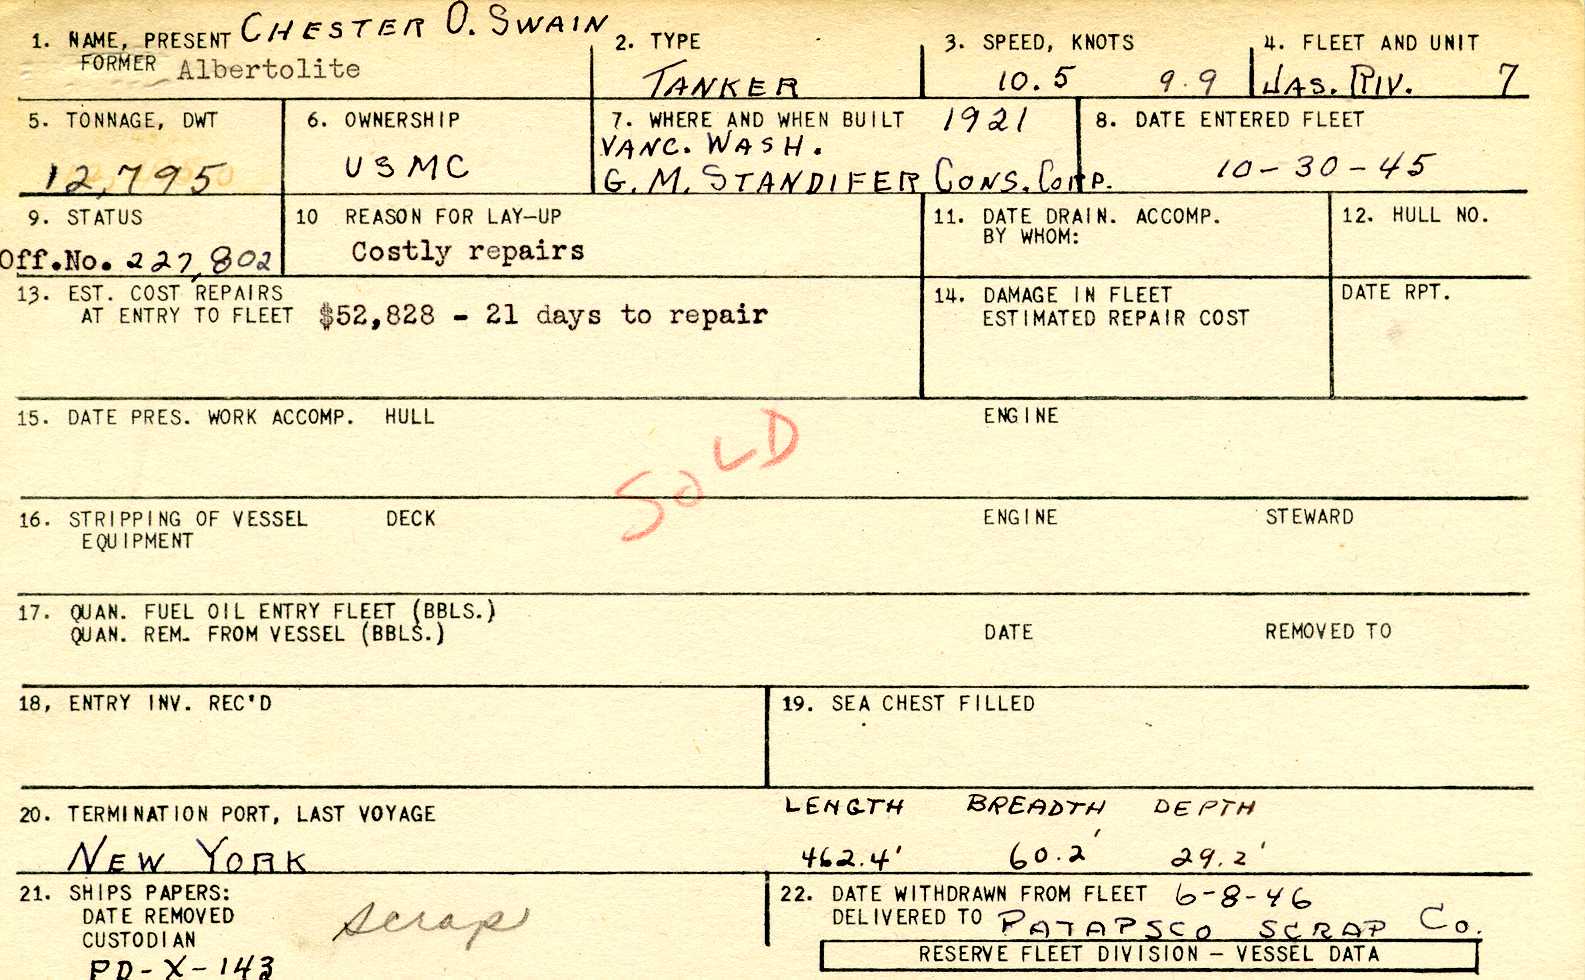 1. NAME, PRESENT CHESTER O. SWAIN
FORMER Albertolite
2. TYPE
TANKER
3. SPEED, KNOTS
10.5 9.9
4. FLEET AND UNIT
JAS. RIV. 7
5. TONNAGE, DWT
12,795
6. OWNERSHIP
USMC
7. WHERE AND WHEN BUILT 1921
VANC. WASH.
G. M. STANDIFER CONS. CORP.
8. DATE ENTERED FLEET
10-30-45
9. STATUS
Off.No. 227,802
10 REASON FOR LAY-UP
Costly repairs
11. DATE DRAIN. ACCOMP.
BY WHOM:
12. HULL NO.
13. EST. COST REPAIRS
AT ENTRY TO FLEET $52,828 - 21 days to repair
14. DAMAGE IN FLEET
ESTIMATED REPAIR COST
DATE RPT.
15. DATE PRES. WORK ACCOMP. HULL ENGINE
SOLD
16. STRIPPING OF VESSEL DECK ENGINE STEWARD
EQUIPMENT
17. QUAN. FUEL OIL ENTRY FLEET (BBLS.)
QUAN. REM. FROM VESSEL (BBLS.) DATE REMOVED TO
18, ENTRY INV. REC'D
19. SEA CHEST FILLED
20. TERMINATION PORT, LAST VOYAGE
NEW YORK
LENGTH BREADTH DEPTH
462.4' 60.2' 29.2'
21. SHIPS PAPERS:
DATE REMOVED
CUSTODIAN
scrap
PD-X-143
22. DATE WITHDRAWN FROM FLEET 6-8-46
DELIVERED TO PATAPSCO SCRAP Co.
RESERVE FLEET DIVISION - VESSEL DATA